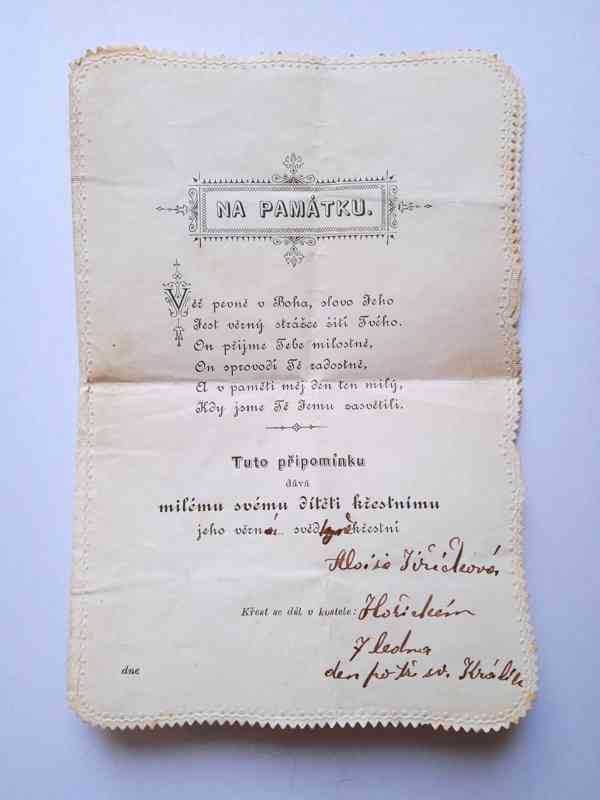 NA PAMÁTKU.
Věř pevně v Boha, slovo Jeho
Jest věrný strážce žití Tvého.
On přijme Tebe milostně,
On sprovodí Tě radostně,
A v paměti měj den ten milý,
Kdy jsme Tě Jemu zasvětili.
Tuto připomínku
dává
milému svému dítěti křestnímu
jeho věrná křestní
Aloisie Jiřičková
Křest se děl v kostele: Hořickém
7 ledna
dne den po Tř sv. Králích